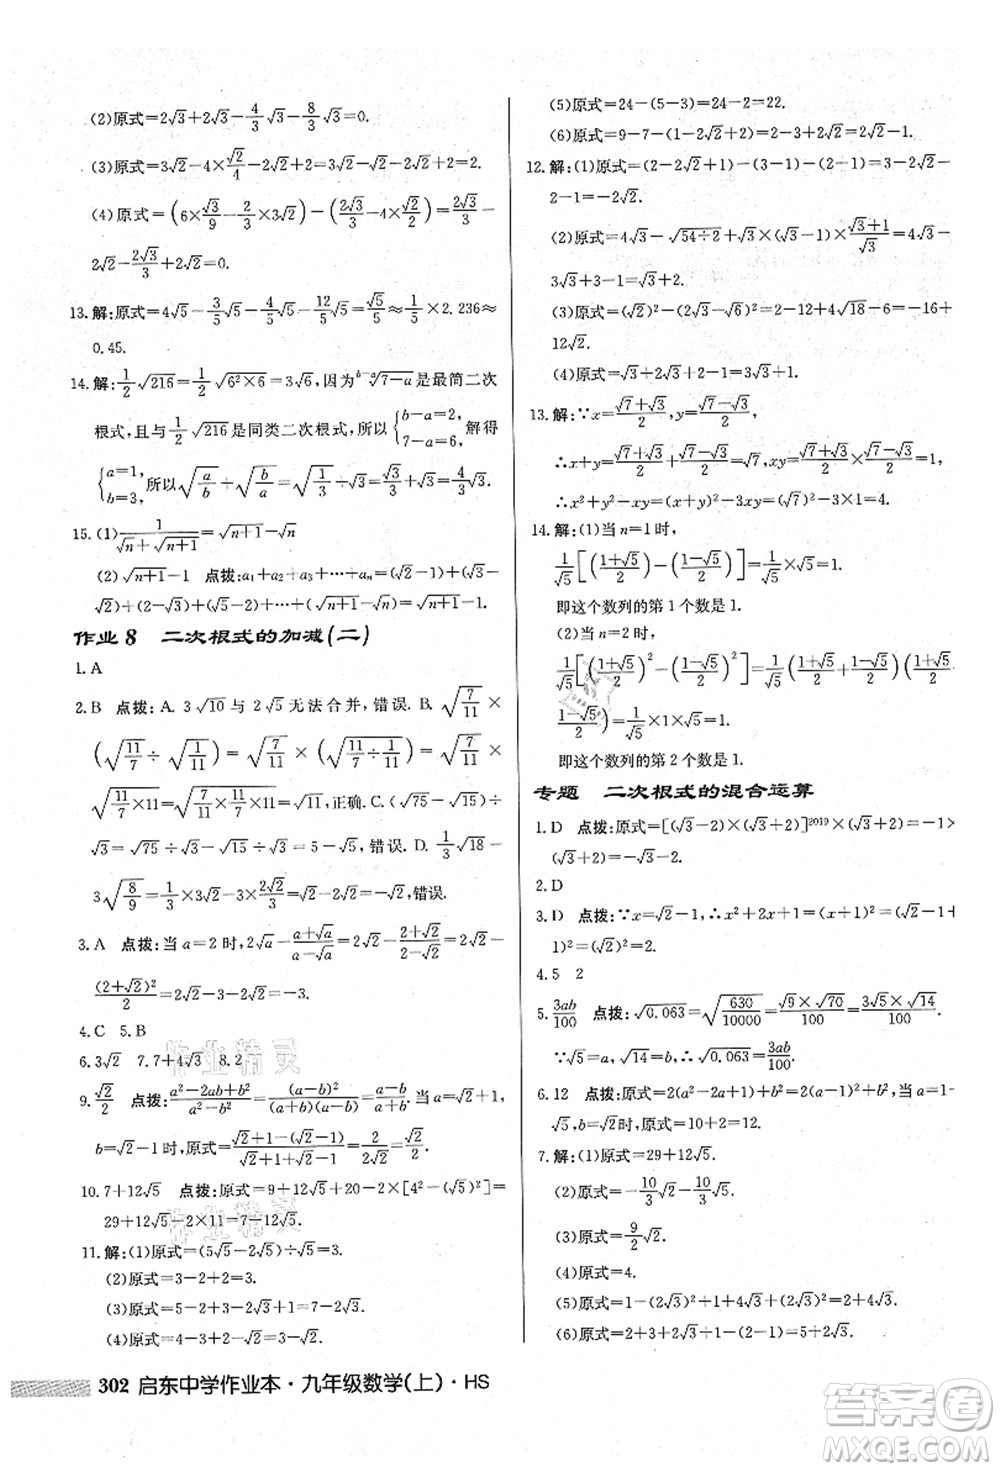 (2)原式=2√3+2√3-4/3√3-8/3√3=0.
(3)原式=3√2-4×√2/4=3√2-√2=2√2.
(4)原式=(6×√3/9-2/3×3√2)-(2√3/4×4/3-2√2)=2√3/3-
2√2-2√3/3+2√2=0.
13.解:原式=4√5-3/5√5-12/5√5=√5/5≈1/5×2.236≈
0.45.
14.解:1/2√216=1/2√(6²×6)=3√6,因为 ᵇ⁻ᵃ√(7-a)是最简二次
根式,且与1/2√216是同类二次根式,所以{b-a=2, 7-a=6,解得
{a=1, b=3,所以√(a/b)+√(b/a)=√(1/3)+√3=√3/3+√3=4√3/3.
15.(1)1/(√n+√(n+1))=√(n+1)-√n
(2)√(n+1)-1 点拨:a₁+a₂+…+aₙ=(√2-1)+(√3-
√2)+(2-√3)+…+(√(n+1)-√n)=√(n+1)-1.
作业8 二次根式的加减(二)
1.A
2.B 点拨:A.3√10与2√5无法合并,错误.B.√(7/11)×
(√(7/11)÷√(1/11))=√(7/11)×(√(7/11÷1/11))=√(7/11)×
√(7/11×11)=√(7/11×7/11×11),正确.C.(√75-√15)÷
√3=√75÷√3-√15÷√3=5-√5,错误.D.1/3√18-
3√(8/9)=1/3×3√2-3×2√2/3=√2-2√2=-√2,错误.
3.A 点拨:当a=2时,2√a-(a+√a)/(a-√a)-a=2√2-(2+√2)/(2-√2)-2=2√2-
(2+√2)²/2-2=2√2-3-2√2-2=-5.
4.C 5.B
6.3√2 7.7+4√3 8.2
9.√2/2 点拨:(a²-2ab+b²)/(a²-b²)=(a-b)²/((a+b)(a-b))=(a-b)/(a+b).当a=√2+1,
b=√2-1时,原式=(√2+1-(√2-1))/(√2+1+√2-1)=2/(2√2)=√2/2.
10.7+12√5 点拨:原式=9+12√5+20-2×[4²-(√5)²]=
29+12√5-2×11=7+12√5.
11.解:(1)原式=(5√5-2√5)÷√5=3.
(2)原式=3-2+2=3.
(3)原式=5-2+3-2√3+1=7-2√3.
(4)原式=2√3-2√3-6=-6.
(5)原式=24-(5-3)=24-2=22.
(6)原式=9-7-(1-2√2+2)=2-3+2√2=2√2-1.
12.解:(1)原式=(2-2√2+1)-(3-1)-(2-1)=3-2√2-
2-1=-2√2.
(2)原式=4√3-√(54÷2)+√3×(√3-1)×(√3+1)/√3=4√3-
3√3+3-1=√3+2.
(3)原式=(√2)²-(2√3-√6)²=2-12+12√2-6=-16+
12√2.
(4)原式=√3+2-√3-1=1.
13.解:∵x=(√7+√3)/2,y=(√7-√3)/2,
∴x+y=(√7+√3)/2+(√7-√3)/2=√7,xy=(√7+√3)/2×(√7-√3)/2=1,
∴x²+y²-xy=(x+y)²-3xy=(√7)²-3×1=4.
14.解:(1)当n=1时,
1/√5[((1+√5)/2)-((1-√5)/2)]=1/√5×(1+√5-1+√5)/2=1/√5×√5=1.
即这个数列的第1个数是1.
(2)当n=2时,
1/√5[((1+√5)/2)²-((1-√5)/2)²]=1/√5((1+√5)/2+(1-√5)/2)((1+√5)/2-
(1-√5)/2)=1/√5×1×√5=1.
即这个数列的第2个数是1.
专题 二次根式的混合运算
1.D 点拨:原式=[(√3-2)×(√3+2)]²⁰¹⁹×(√3+2)=-1×
(√3+2)=-√3-2.
2.D
3.D 点拨:∵x=√2-1,∴x²+2x+1=(x+1)²=(√2-1+
1)²=(√2)²=2.
4.5 2
5.3ab/100 点拨:√0.063=√(630/10000)=(√9×√70)/100=(3√5×√14)/100.
∵√5=a,√14=b,∴√0.063=3ab/100.
6.12 点拨:原式=2(a²-2a+1)+2=2(a-1)²+2,当a=
√5+1时,原式=2(√5+1-1)²+2=10+2=12.
7.解:(1)原式=29+12√5.
(2)原式=-10/3√2-10/3√3.
(3)原式=9/2√2.
(4)原式=4.
(5)原式=1-(2-2√2+1)+2√2=-2+4√2.
(6)原式=1+√3-√3+1=2.
302 启东中学作业本·九年级数学(上)·HS
作业精灵
作业精灵
答案圈
MXQE.COM